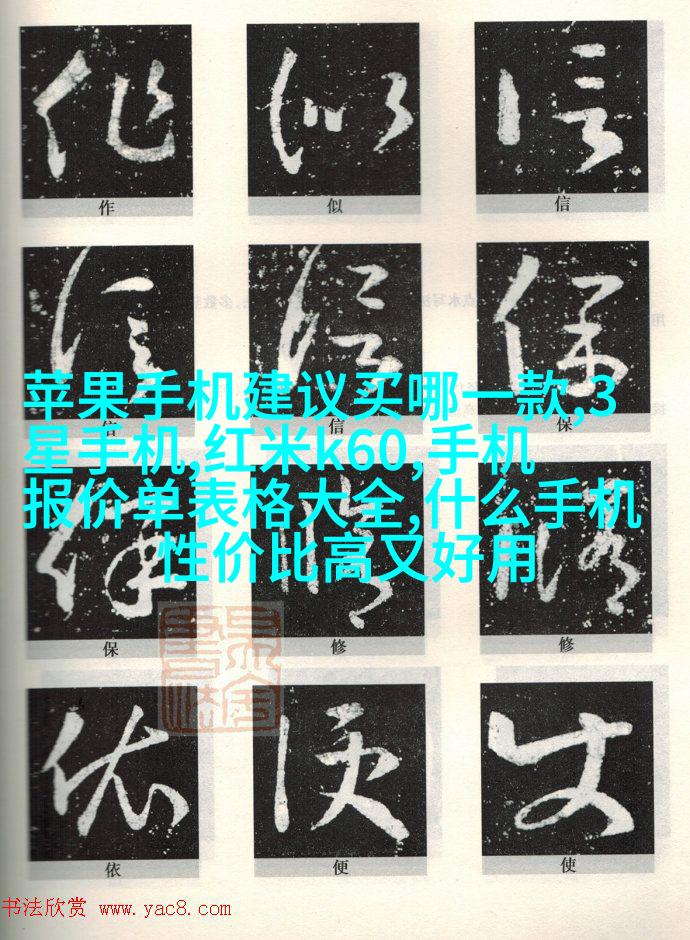 作 似 信
信 信 保
苹果手机建议买哪一款,3
星手机,红米k60,手机
报价单表格大全,什么手机
性价比高又好用
保 修 修
依 便 使
书法欣赏 www.yac8.com